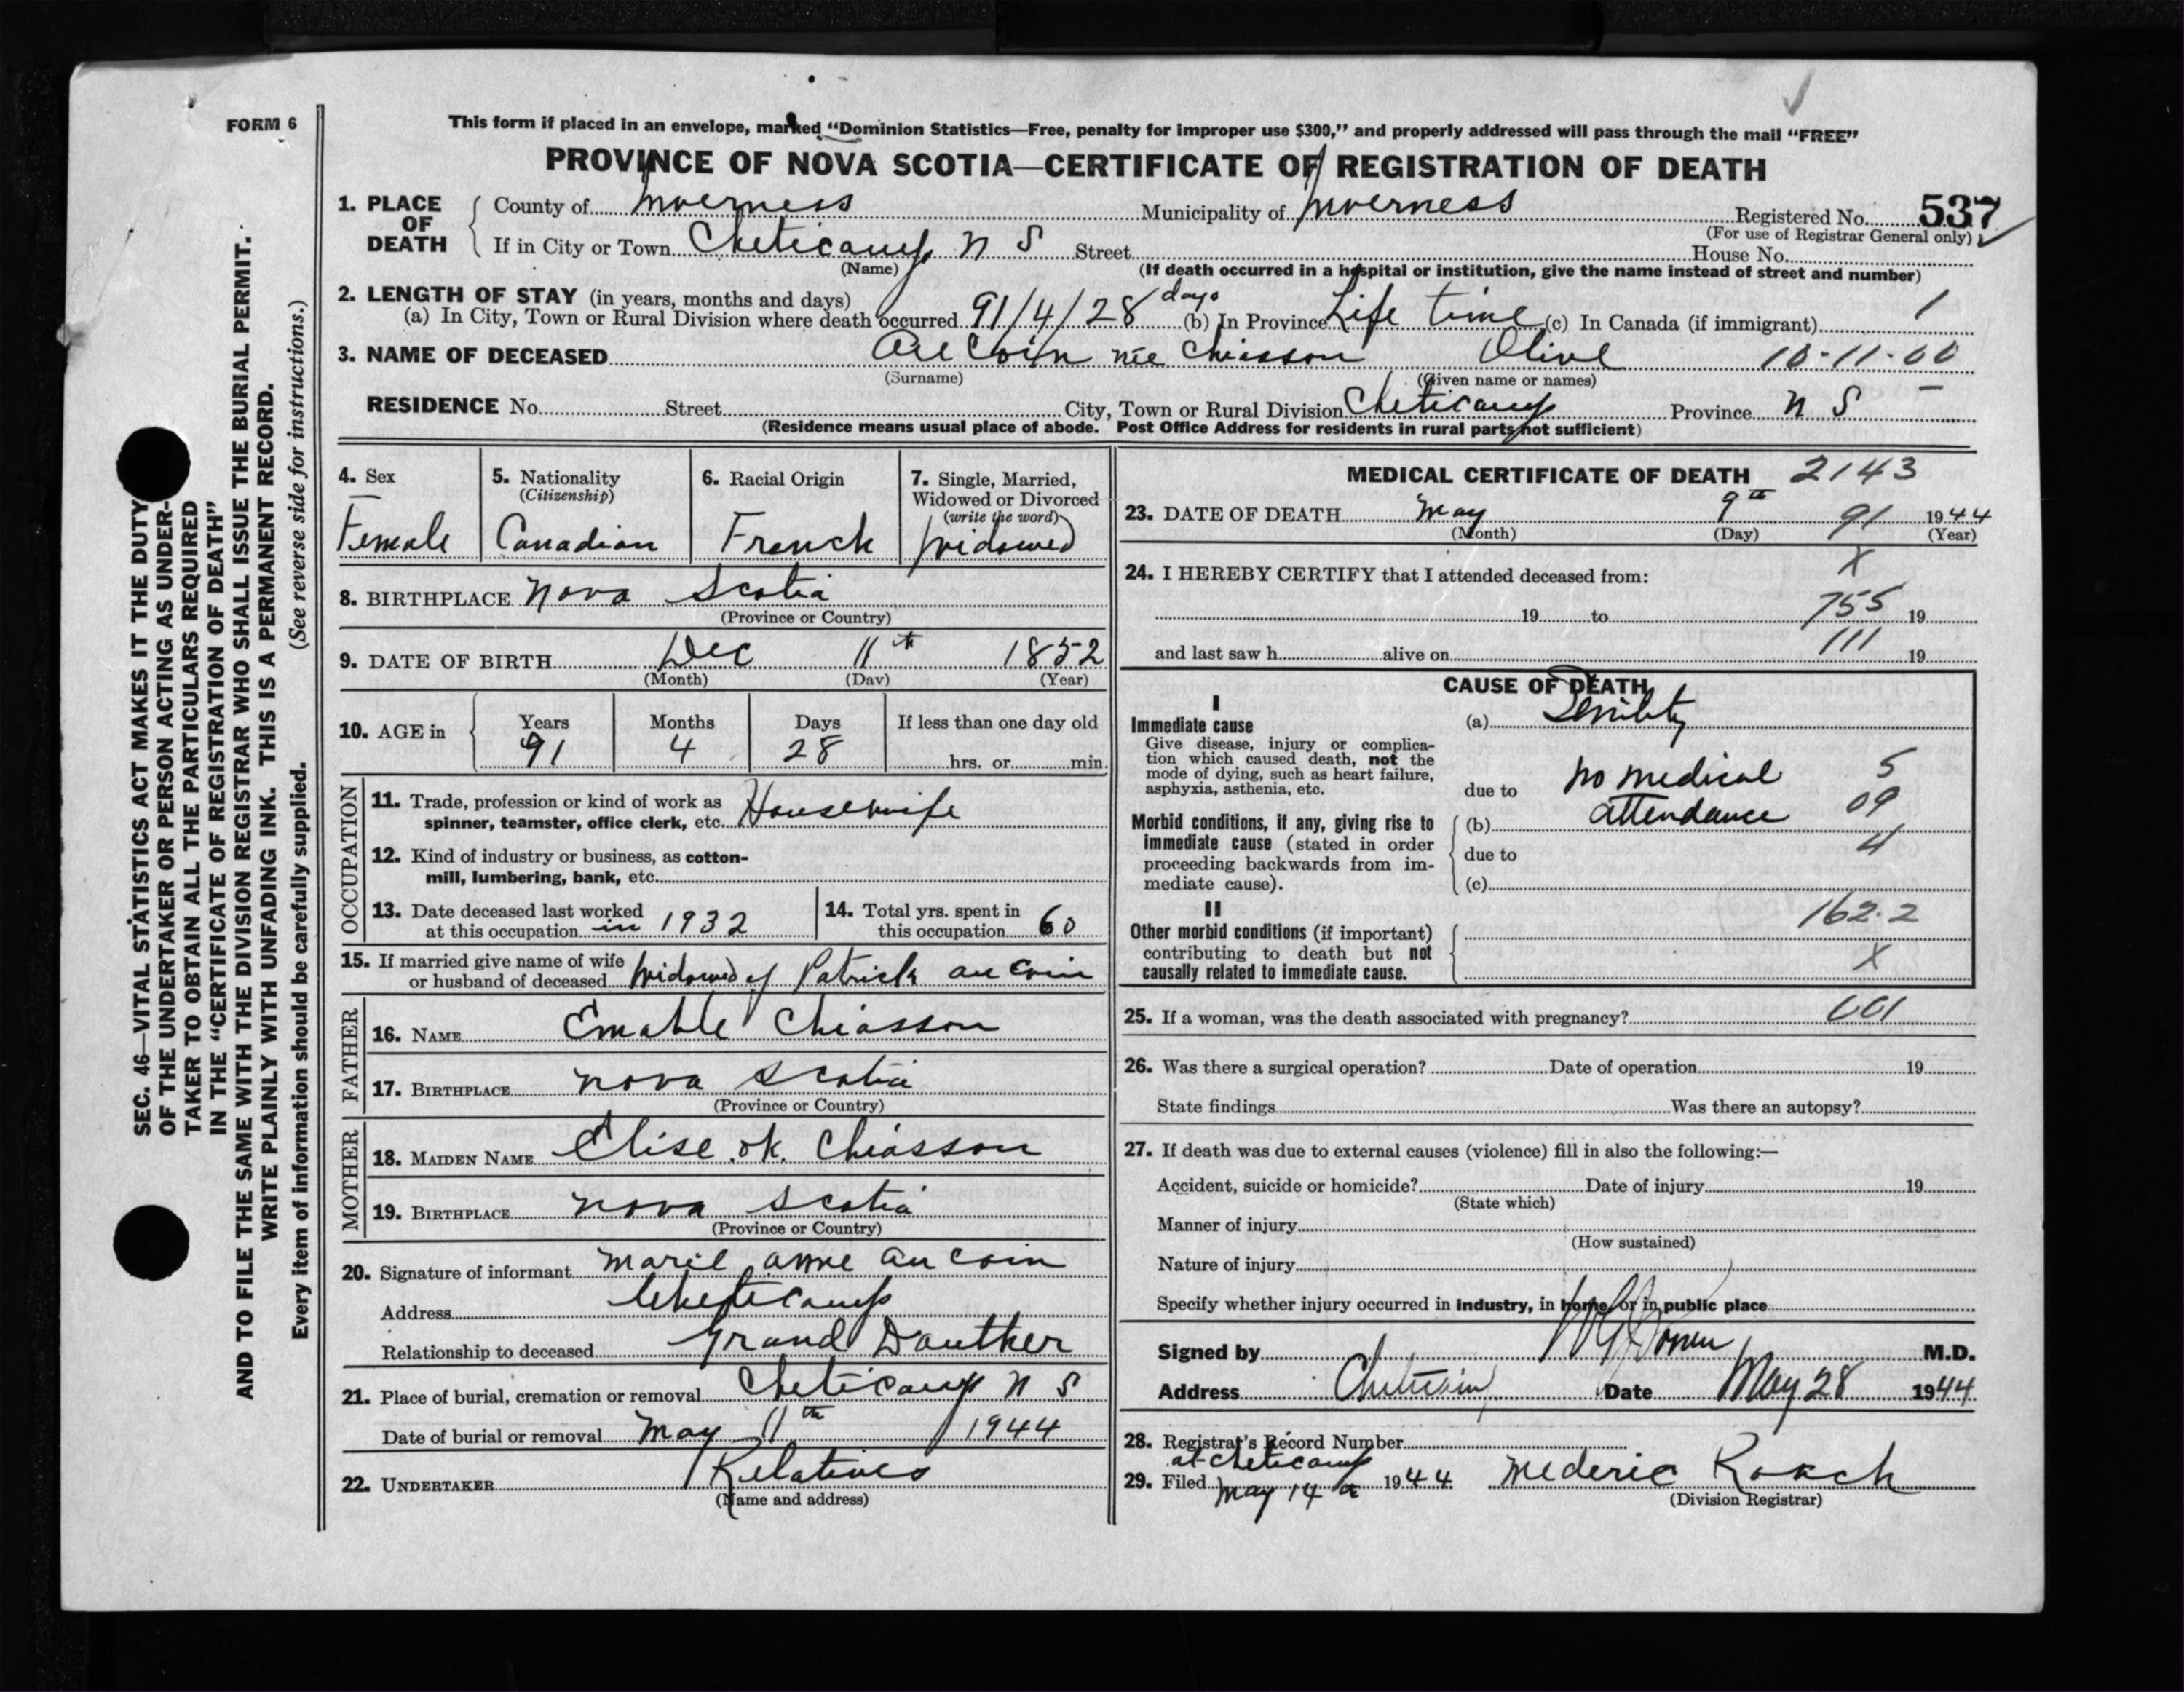 FORM 6
This form if placed in an envelope, marked "Dominion Statistics—Free, penalty for improper use $300," and properly addressed will pass through the mail "FREE"
PROVINCE OF NOVA SCOTIA—CERTIFICATE OF REGISTRATION OF DEATH
1. PLACE OF DEATH
County of Inverness Municipality of Inverness Registered No. 537
(For use of Registrar General only)
If in City or Town Cheticamp N S Street House No.
(Name) (If death occurred in a hospital or institution, give the name instead of street and number)
2. LENGTH OF STAY (in years, months and days)
(a) In City, Town or Rural Division where death occurred 91/4/28 days (b) In Province Life time (c) In Canada (if immigrant) 1
3. NAME OF DECEASED Au Coin nee Chiasson Olive 10-11-00
(Surname) (Given name or names)
RESIDENCE No. Street City, Town or Rural Division Cheticamp Province N S
(Residence means usual place of abode. Post Office Address for residents in rural parts not sufficient)
SEC. 46—VITAL STATISTICS ACT MAKES IT THE DUTY
OF THE UNDERTAKER OR PERSON ACTING AS UNDER-
TAKER TO OBTAIN ALL THE PARTICULARS REQUIRED
IN THE "CERTIFICATE OF REGISTRATION OF DEATH"
AND TO FILE THE SAME WITH THE DIVISION REGISTRAR WHO SHALL ISSUE THE BURIAL PERMIT.
WRITE PLAINLY WITH UNFADING INK. THIS IS A PERMANENT RECORD.
Every item of information should be carefully supplied. (See reverse side for instructions.)
4. Sex
Female
5. Nationality
(Citizenship)
Canadian
6. Racial Origin
French
7. Single, Married,
Widowed or Divorced
(write the word)
Widowed
8. BIRTHPLACE Nova Scotia
(Province or Country)
9. DATE OF BIRTH Dec 11th 1852
(Month) (Day) (Year)
10. AGE in
Years Months Days If less than one day old
91 4 28 hrs. or min.
OCCUPATION
11. Trade, profession or kind of work as
spinner, teamster, office clerk, etc. Housewife
12. Kind of industry or business, as cotton-
mill, lumbering, bank, etc.
13. Date deceased last worked
at this occupation in 1932
14. Total yrs. spent in
this occupation 60
15. If married give name of wife
or husband of deceased Widowed of Patrick au Coin
FATHER
16. NAME Emable Chiasson
17. BIRTHPLACE Nova Scotia
(Province or Country)
MOTHER
18. MAIDEN NAME Elise .ok. Chiasson
19. BIRTHPLACE Nova Scotia
(Province or Country)
20. Signature of informant Marie anne au Coin
Address Cheticamp
Relationship to deceased Grand Dauther
21. Place of burial, cremation or removal Cheticamp N S
Date of burial or removal May 11th 1944
22. UNDERTAKER Relatives
(Name and address)
MEDICAL CERTIFICATE OF DEATH 2143
23. DATE OF DEATH May 9th 91 1944
(Month) (Day) (Year)
X
24. I HEREBY CERTIFY that I attended deceased from:
19 to 755 19
111
and last saw h alive on 19
CAUSE OF DEATH
I
Immediate cause (a) Senility
Give disease, injury or complica-
tion which caused death, not the
mode of dying, such as heart failure,
asphyxia, asthenia, etc.
due to No medical 5
attendance 09
Morbid conditions, if any, giving rise to
immediate cause (stated in order
proceeding backwards from im-
mediate cause).
(b)
due to 4
(c)
II 162.2
Other morbid conditions (if important)
contributing to death but not
causally related to immediate cause. X
25. If a woman, was the death associated with pregnancy? 001
26. Was there a surgical operation? Date of operation 19
State findings Was there an autopsy?
27. If death was due to external causes (violence) fill in also the following:—
Accident, suicide or homicide? Date of injury 19
(State which)
Manner of injury
(How sustained)
Nature of injury
Specify whether injury occurred in industry, in home, or in public place
Signed by M.D.
Address Date May 28 1944
28. Registrar's Record Number
at Cheticamp
29. Filed May 14 1944 Mederic Roach
(Division Registrar)